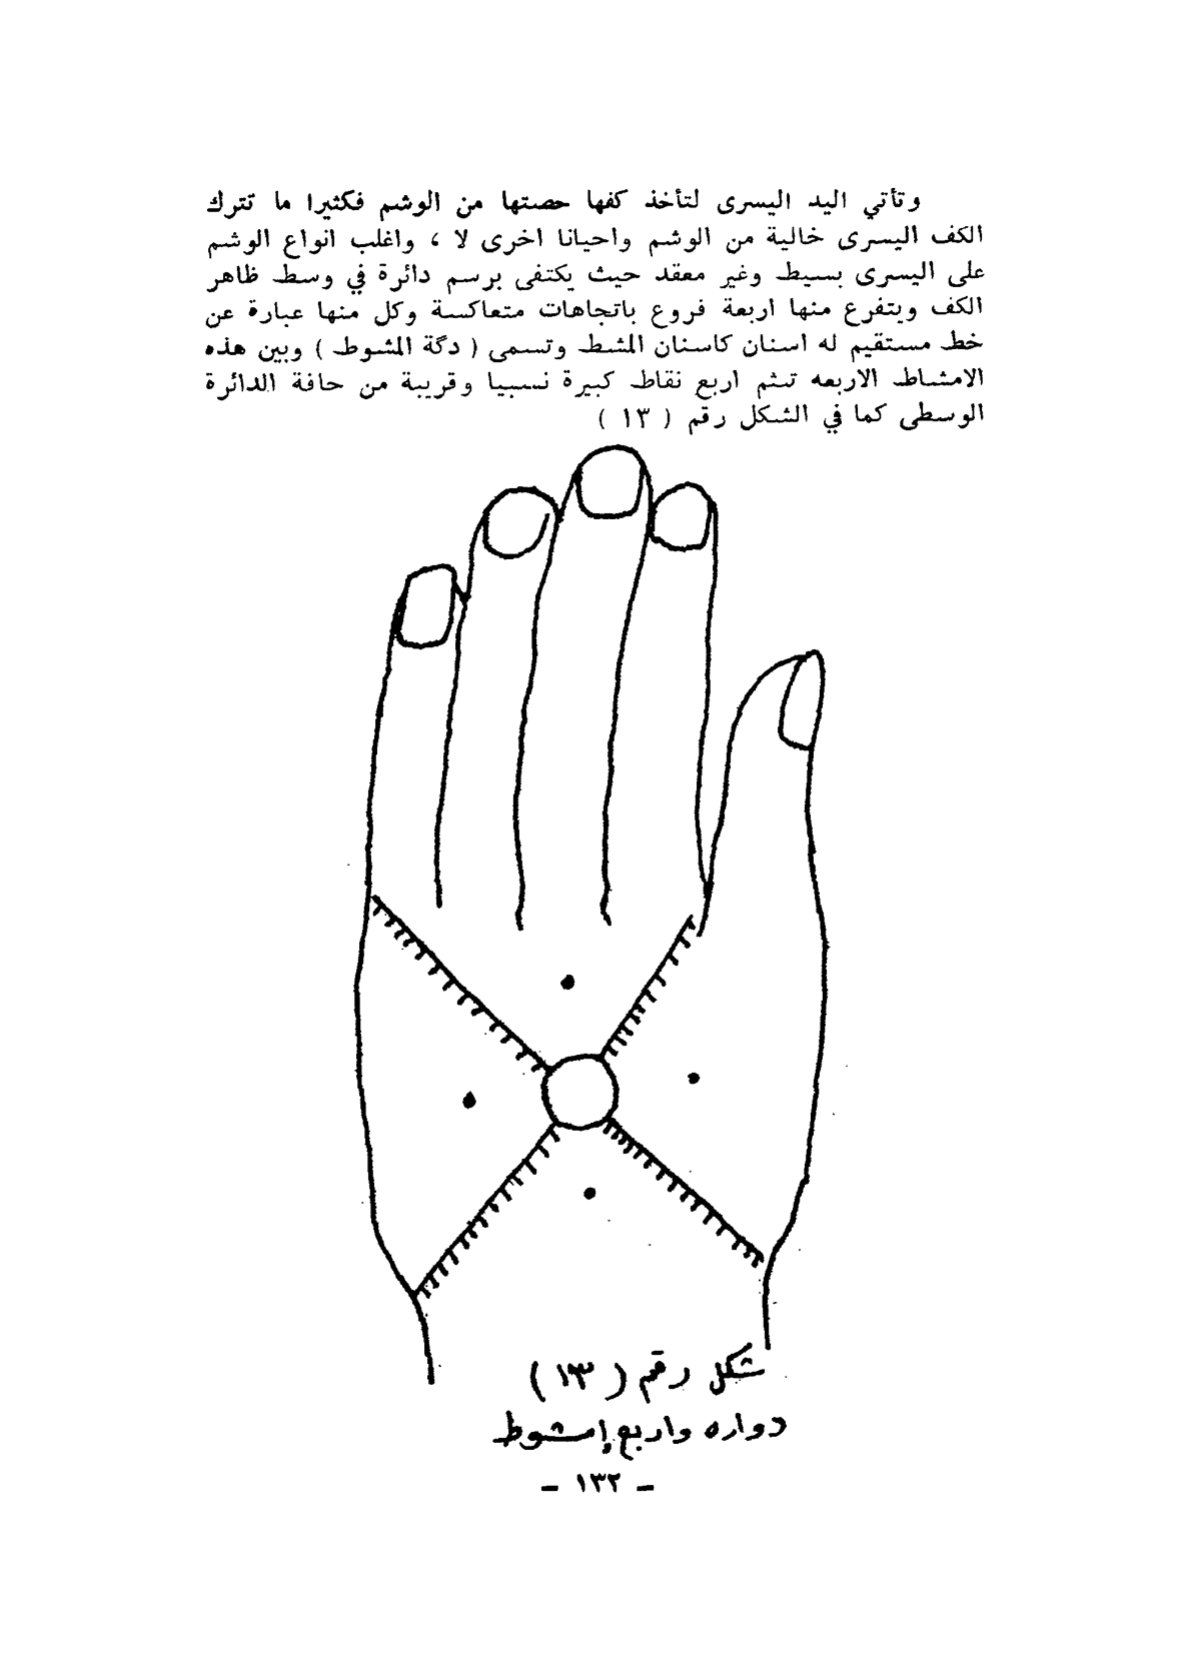 وتأتي اليد اليسرى لتأخذ كفها حصتها من الوشم فكثيرا ما تترك
الكف اليسرى خالية من الوشم واحيانا اخرى لا ، واغلب انواع الوشم
على اليسرى بسيط وغير معقد حيث يكتفى برسم دائرة في وسط ظاهر
الكف ويتفرع منها اربعة فروع باتجاهات متعاكسة وكل منها عبارة عن
خط مستقيم له اسنان كاسنان المشط وتسمى ( دگة المشوط ) وبين هذه
الامشاط الاربعه تشم اربع نقاط كبيرة نسبيا وقريبة من حافة الدائرة
الوسطى كما في الشكل رقم ( ١٣ )
شكل رقم ( ١٣ )
دواره واربع إمشوط
- ١٣٢ -